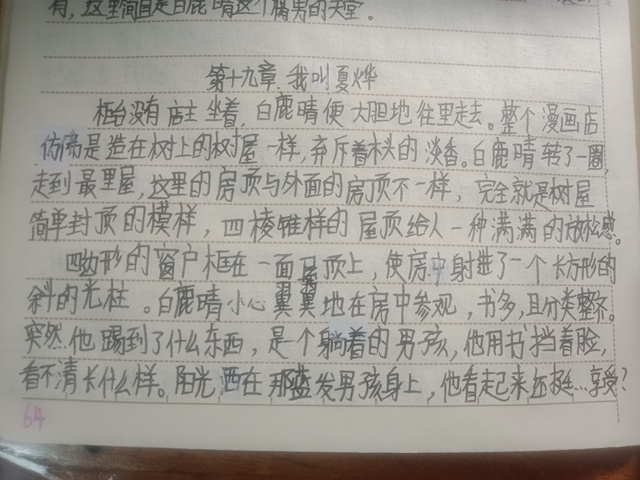 有，这里简直是白鹿晴这个腐男的天堂。
第十九章 我叫夏烨
柜台没有店主坐着，白鹿晴便大胆地往里走去。整个漫画店
仿佛是造在树上的树屋一样，弃斥着木头的淡香。白鹿晴转了一圈，
走到最里屋，这里的房顶与外面的房顶不一样，完全就是树屋
简单封顶的模样，四棱锥样的屋顶给人一种满满的放松感。
四边形的窗户框在一面顶上，使房中射进了一个长方形的
斜的光柱。白鹿晴小心翼翼地在房中参观，书多，且分类整齐。
突然他踢到了什么东西，是个躺着的男孩，他用书挡着脸，
看不清长什么样。阳光洒在那蓝发男孩身上，他看起来还挺…享受？
64